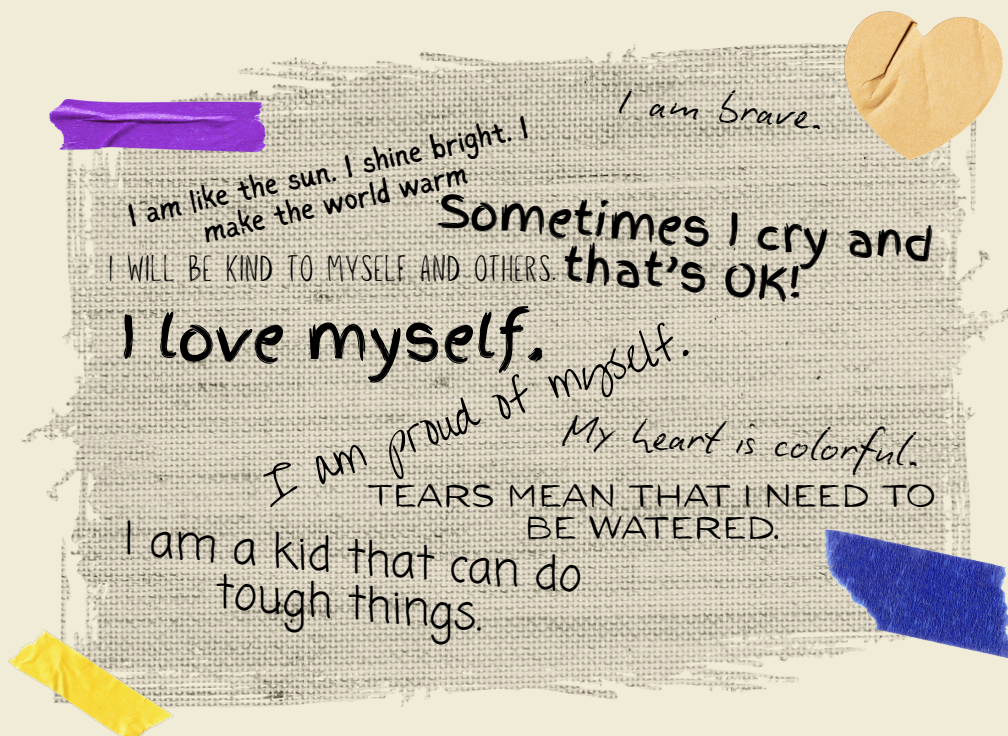 I am brave.
I am like the sun. I shine bright. I
make the world warm
Sometimes I cry and
that's OK!
I WILL BE KIND TO MYSELF AND OTHERS.
I love myself.
I am proud of myself.
My heart is colorful.
TEARS MEAN THAT I NEED TO
BE WATERED.
I am a kid that can do
tough things.